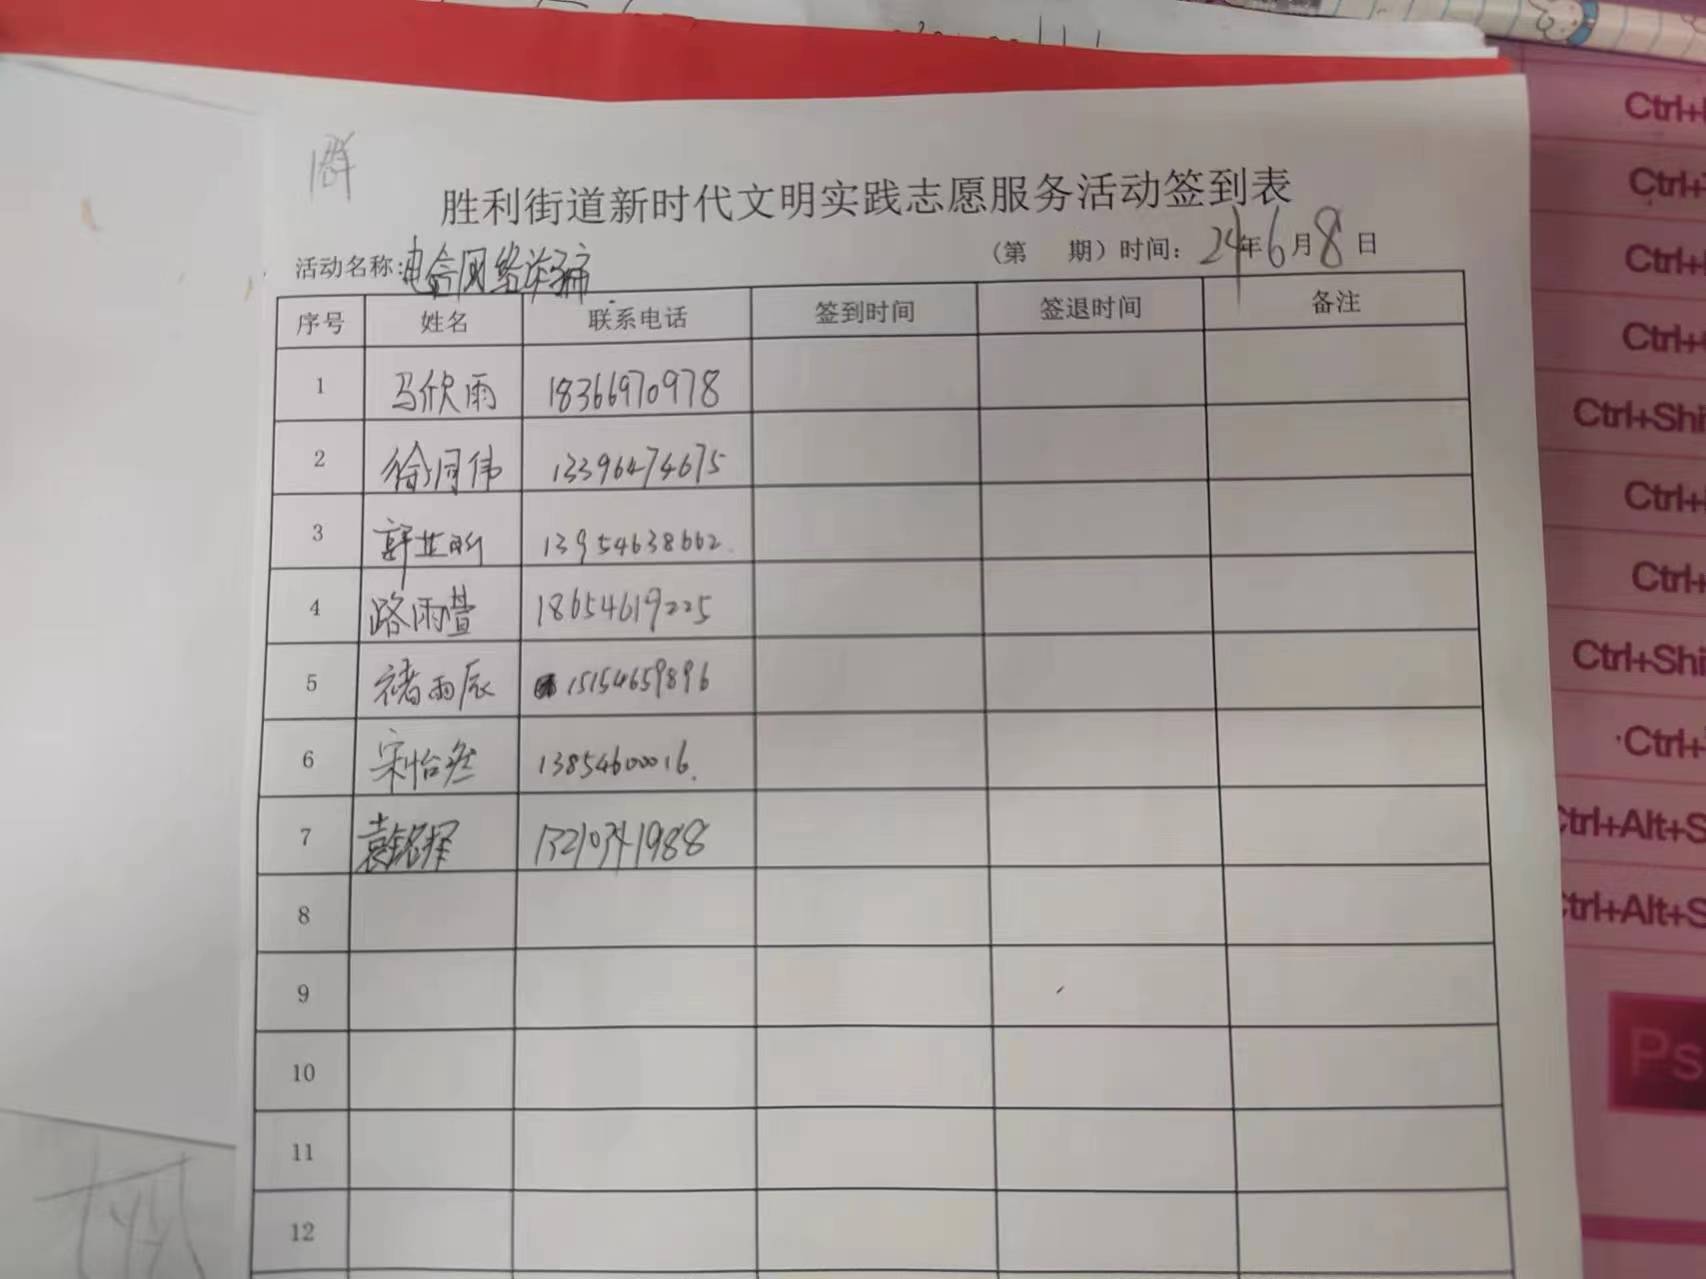 胜利街道新时代文明实践志愿服务活动签到表
活动名称:电信网络诈骗 (第 期)时间: 24年6月8日
序号 姓名 联系电话 签到时间 签退时间 备注
1 马欣雨 18366970978
2 徐润伟 13396474675
3 郭芷昕 13954638662
4 路雨萱 18654619225
5 褚雨辰 15154659896
6 宋怡然 13854600016
7 袁铭择
8
9
10
11
12
Ctrl+
Ctrl+
Ctrl+
Ctrl+
Ctrl+Shi
Ctrl+
Ctrl+
Ctrl+Shi
Ctrl+
Ctrl+Alt+S
Ctrl+Alt+S
Ps